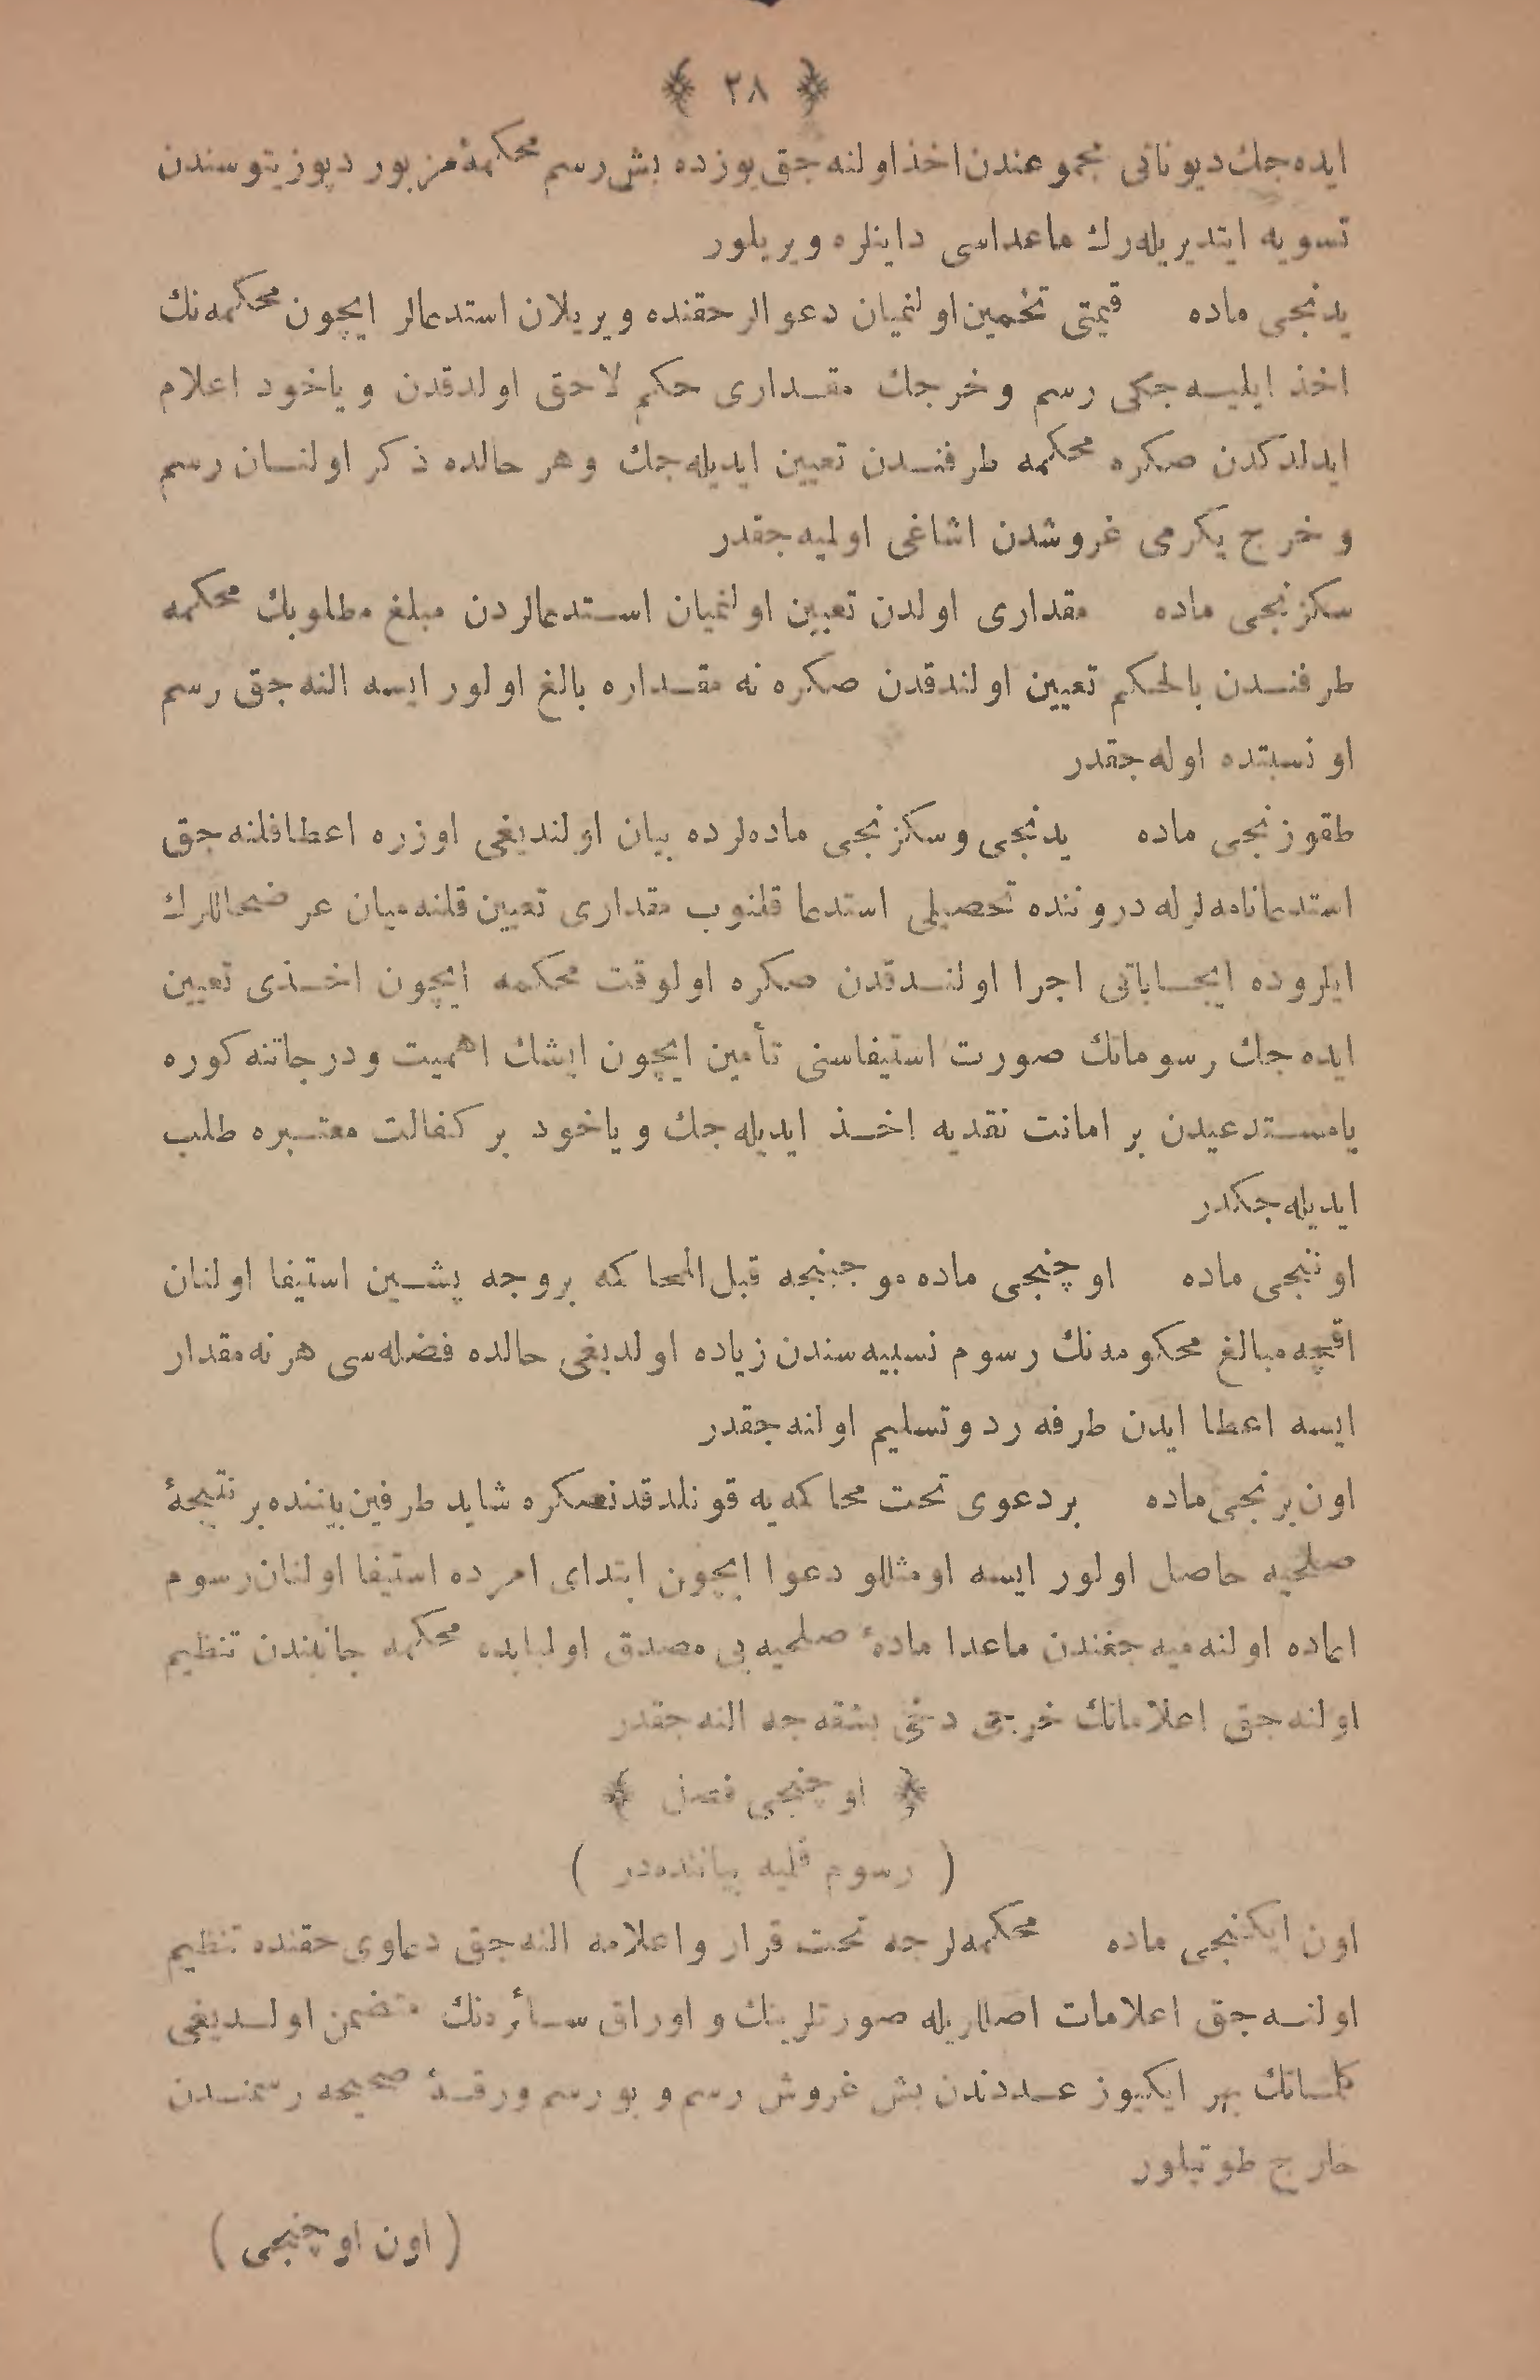 ﴿ ٢٨ ﴾
ايده‌جك ديوناتى مجموعندن اخذ اولنه‌جق يوزده بش رسم محكمهٔ مزبور ديپوزيتوسندن
تسويه ايتديريله‌رك ماعداسى داينلره ويريلور
يدنجى ماده قيمتى تخمين اولنميان دعوالر حقنده ويريلان استدعالر ايچون محكمه‌نك
اخذ ايليه‌جكى رسم وخرجك مقدارى حكم لاحق اولدقدن وياخود اعلام
ايدلدكدن صكره محكمه طرفندن تعيين ايديله‌جك وهر حالده ذكر اولنان رسم
و خرج يكرمى غروشدن اشاغى اولميه‌جقدر
سكزنجى ماده مقدارى اولدن تعيين اولنميان استدعالردن مبلغ مطلوبك محكمه
طرفندن بالحكم تعيين اولندقدن صكره نه مقداره بالغ اولور ايسه النه‌جق رسم
او نسبتده اوله‌جقدر
طقوزنجى ماده يدنجى وسكزنجى ماده‌لرده بيان اولنديغى اوزره اعطا قلنه‌جق
استدعانامه‌لرله دروننده تحصيلى استدعا قلنوب مقدارى تعيين قلنه‌ميان عرضحاللرك
ايلروده ايجاباتى اجرا اولندقدن صكره اولوقت محكمه ايچون اخذى تعيين
ايده‌جك رسوماتك صورت استيفاسنى تأمين ايچون ايشك اهميت ودرجاتنه كوره
يامستدعيدن بر امانت نقديه اخذ ايديله‌جك وياخود بر كفالت معتبره طلب
ايديله‌جكدر
اوننجى ماده اوچنجى ماده موجبنجه قبل المحاكمه بروجه پشين استيفا اولنان
اقچه مبالغ محكومه‌نك رسوم نسبيه‌سندن زياده اولديغى حالده فضله‌سى هر نه مقدار
ايسه اعطا ايدن طرفه رد وتسليم اولنه‌جقدر
اون برنجى ماده بر دعوى تحت محاكمه‌يه قونلدقدنصكره شايد طرفين بيننده بر نتيجهٔ
صلحيه حاصل اولور ايسه اومثللو دعوا ايچون ابتداى امرده استيفا اولنان رسوم
اعاده اولنه‌ميه‌جغندن ماعدا مادهٔ صلحيه‌يى مصدق اولبابده محكمه جانبندن تنظيم
اولنه‌جق اعلاماتك خرجى دخى بشقه‌جه النه‌جقدر
﴿ اوچنجى فصل ﴾
( رسوم قلميه بياننده‌در )
اون ايكنجى ماده محكمه‌لرجه تحت قرار واعلامه النه‌جق دعاوى حقنده تنظيم
اولنه‌جق اعلامات اصللريله صورتلرينك و اوراق سائره‌نك متضمن اولديغى
كلماتك بهر ايكيوز عددندن بش غروش رسم و بو رسم ورقهٔ صحيحه رسمندن
خارج طوتيلور
( اون اوچنجى )